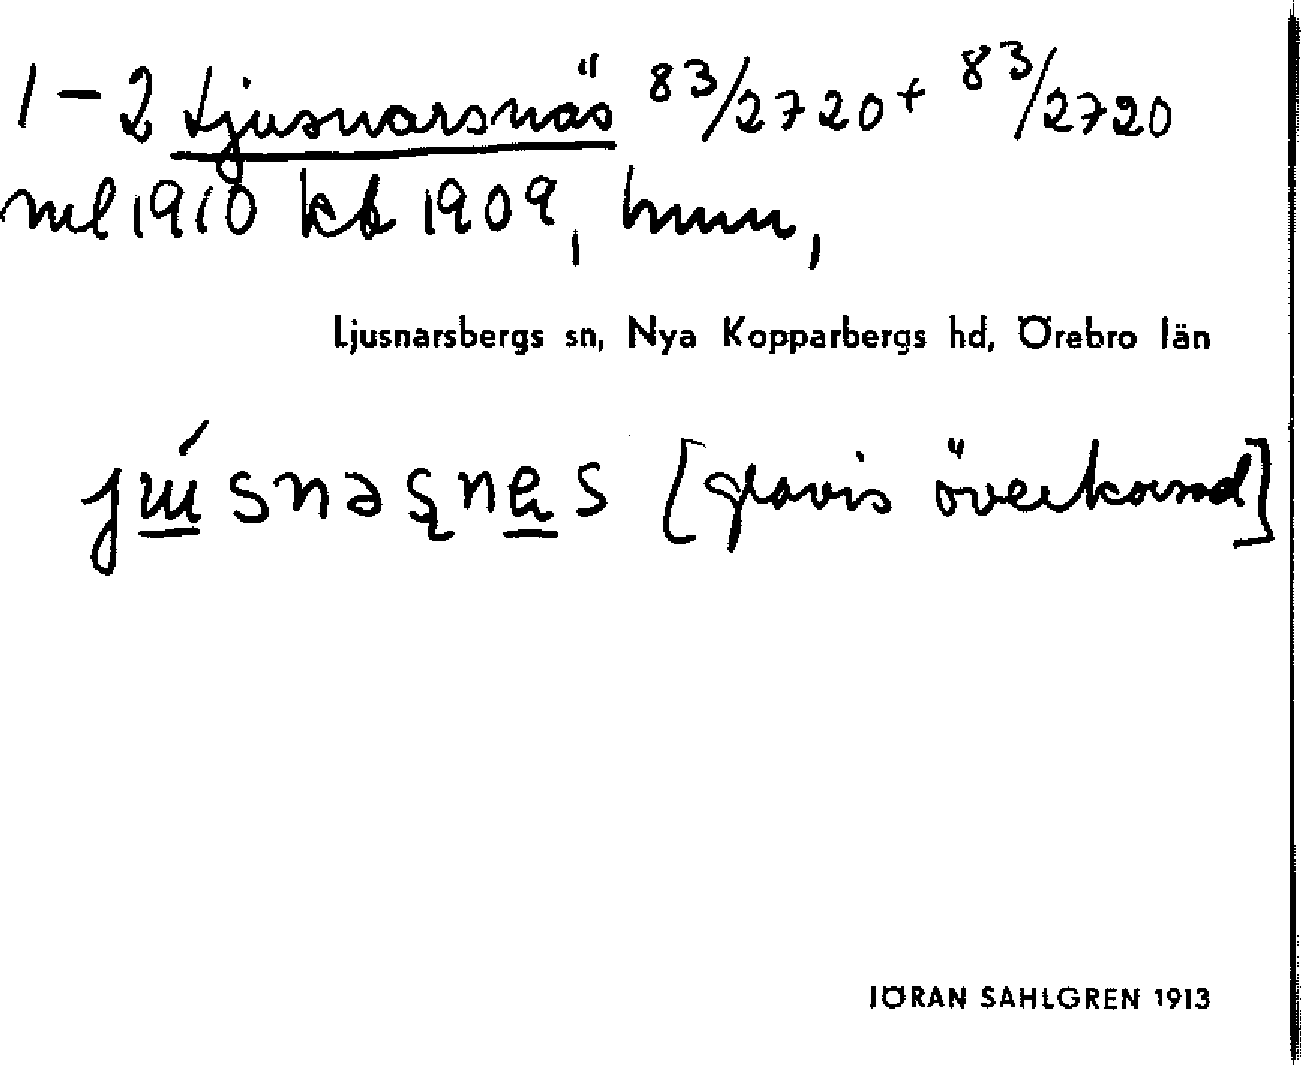 1-2 Ljusnarsnäs 83/2720 + 83/2720
ml 1910 kb 1909, hmn,
Ljusnarsbergs sn, Nya Kopparbergs hd, Örebro län
[gravis överkorsad]
JÖRAN SAHLGREN 1913